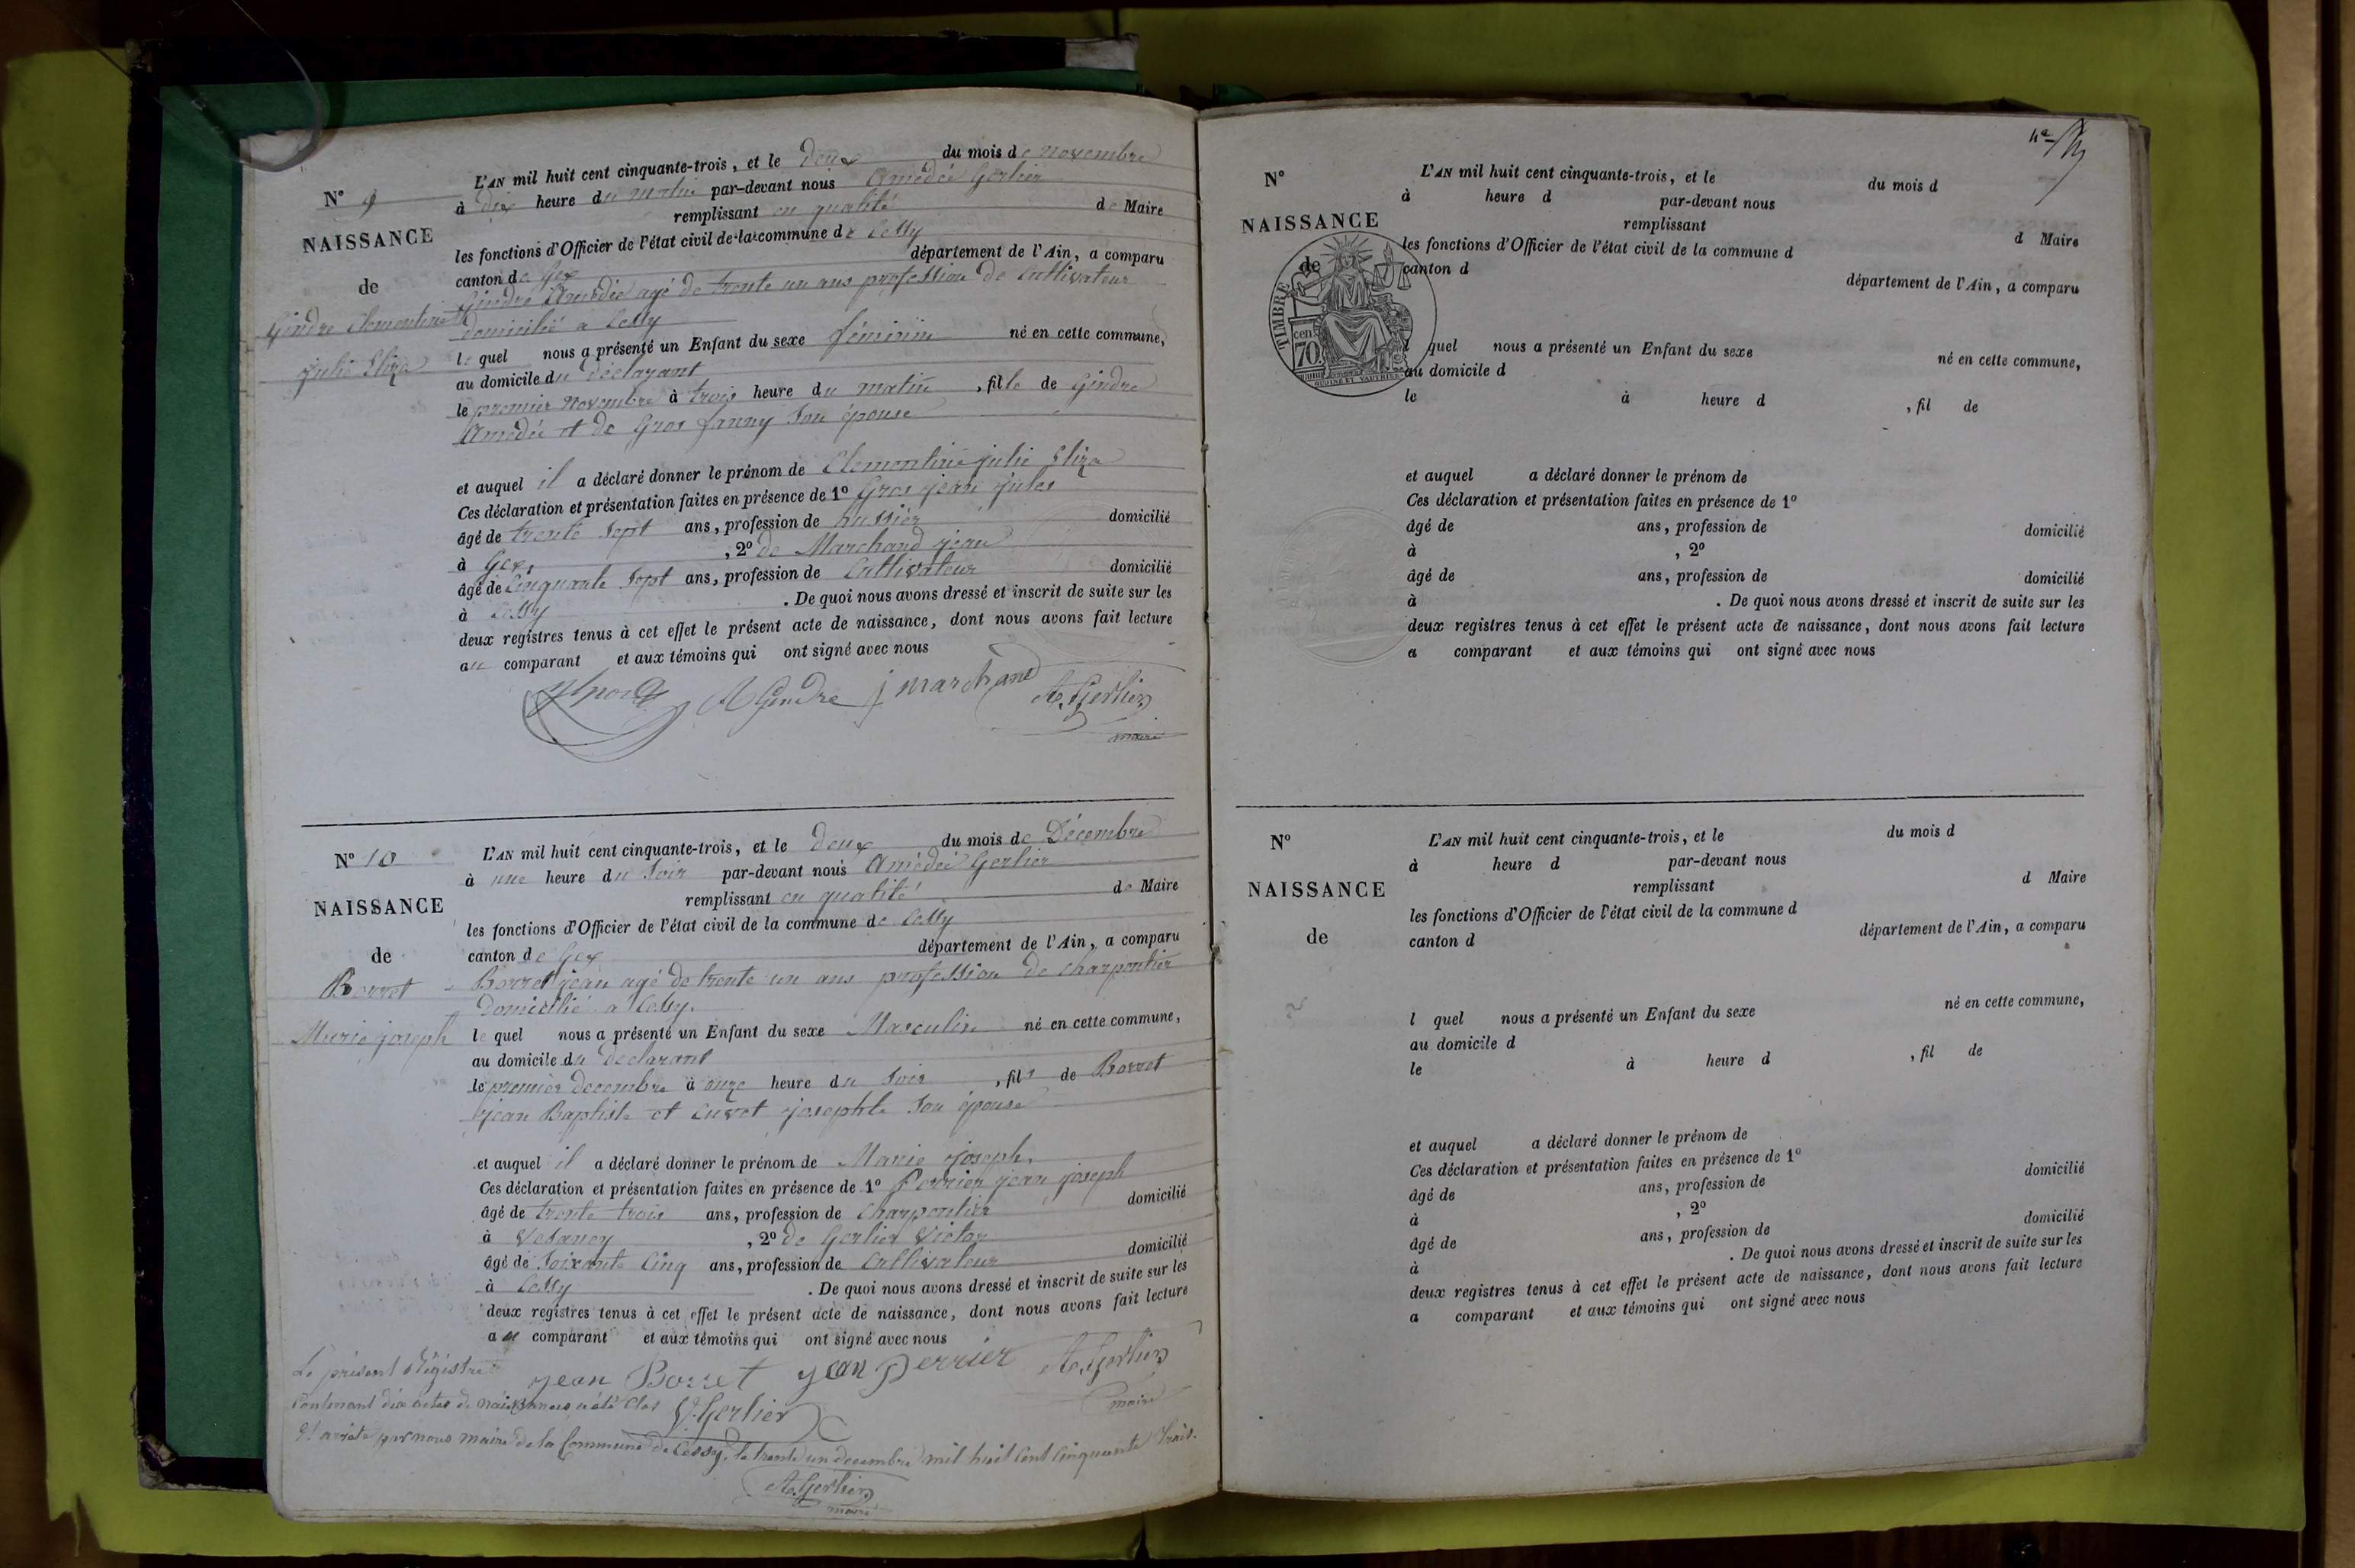 N° 9
NAISSANCE
de
Gindre Clementine
julie Eliza
L'AN mil huit cent cinquante-trois, et le deux du mois de novembre
à dix heure du matin par-devant nous Amédée Gerlier
remplissant en qualité de Maire
les fonctions d'Officier de l'état civil de la commune de Cessy
canton de Gex département de l'Ain, a comparu
Gindre Amédée agé de trente un ans profession de Cultivateur
domicilié a Cessy
le quel nous a présenté un Enfant du sexe féminin né en cette commune,
au domicile du déclarant
le premier novembre à trois heure du matin, fille de Gindre
Amédée et de Gros fanny Son épouse
et auquel il a déclaré donner le prénom de Clementine julie Eliza
Ces déclaration et présentation faites en présence de 1° Gros jean jules
âgé de trente Sept ans, profession de hussier domicilié
à Gex, , 2° de Marchand jean
âgé de Cinquante Sept ans, profession de Cultivateur domicilié
à Cessy . De quoi nous avons dressé et inscrit de suite sur les
deux registres tenus à cet effet le présent acte de naissance, dont nous avons fait lecture
au comparant et aux témoins qui ont signé avec nous
A Gindre j marchand A. Gerlier
maire
N° 10
NAISSANCE
de
Borret
Marie joseph
L'AN mil huit cent cinquante-trois, et le deux du mois de Décembre
à une heure du Soir par-devant nous Amédée Gerlier
remplissant en qualité de Maire
les fonctions d'Officier de l'état civil de la commune de Cessy
canton de Gex département de l'Ain, a comparu
Borret jean agé de trente un ans profession de charpentier
Domicilié a Cessy.
le quel nous a présenté un Enfant du sexe Masculin né en cette commune,
au domicile du declarant
le premier decembre à onze heure du Soir , fils de Borret
jean Baptiste et Cuvet josephte Son épouse
et auquel il a déclaré donner le prénom de Marie joseph.
Ces déclaration et présentation faites en présence de 1° Perrier jean joseph
âgé de trente trois ans, profession de Charpentier domicilié
à Vesancy , 2° de Gerlier Victor
âgé de Soixante Cinq ans, profession de Cultivateur domicilié
à Cessy . De quoi nous avons dressé et inscrit de suite sur les
deux registres tenus à cet effet le présent acte de naissance, dont nous avons fait lecture
au comparant et aux témoins qui ont signé avec nous
jean Borret jean perrier A. Gerlier
maire
V. Gerlier
Le présent Régistre
Contenant dix actes de naissances a été Clos
Et arrêté par nous maire de la Commune de Cessy, le trente un decembre mil huit Cent Cinquante trois.
A. Gerlier
maire
N°
NAISSANCE
de
TIMBRE
70
L'AN mil huit cent cinquante-trois, et le du mois d
à heure d par-devant nous
remplissant d Maire
les fonctions d'Officier de l'état civil de la commune d
canton d département de l'Ain, a comparu
l quel nous a présenté un Enfant du sexe né en cette commune,
au domicile d
le à heure d , fil de
et auquel a déclaré donner le prénom de
Ces déclaration et présentation faites en présence de 1°
âgé de ans, profession de domicilié
à , 2°
âgé de ans, profession de domicilié
à . De quoi nous avons dressé et inscrit de suite sur les
deux registres tenus à cet effet le présent acte de naissance, dont nous avons fait lecture
a comparant et aux témoins qui ont signé avec nous
N°
NAISSANCE
de
L'AN mil huit cent cinquante-trois, et le du mois d
à heure d par-devant nous
remplissant d Maire
les fonctions d'Officier de l'état civil de la commune d
canton d département de l'Ain, a comparu
l quel nous a présenté un Enfant du sexe né en cette commune,
au domicile d
le à heure d , fil de
et auquel a déclaré donner le prénom de
Ces déclaration et présentation faites en présence de 1°
âgé de ans, profession de domicilié
à , 2°
âgé de ans, profession de domicilié
à . De quoi nous avons dressé et inscrit de suite sur les
deux registres tenus à cet effet le présent acte de naissance, dont nous avons fait lecture
a comparant et aux témoins qui ont signé avec nous